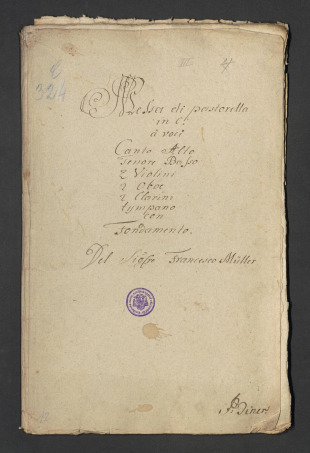 E
324
Messa di pastorella
in C.
à voci
Canto Alto
Tenore Basso
2 Violini
2 Oboe
2 Clarini
tympano
con
Fondamento.
Del Sigre Francesco Müller